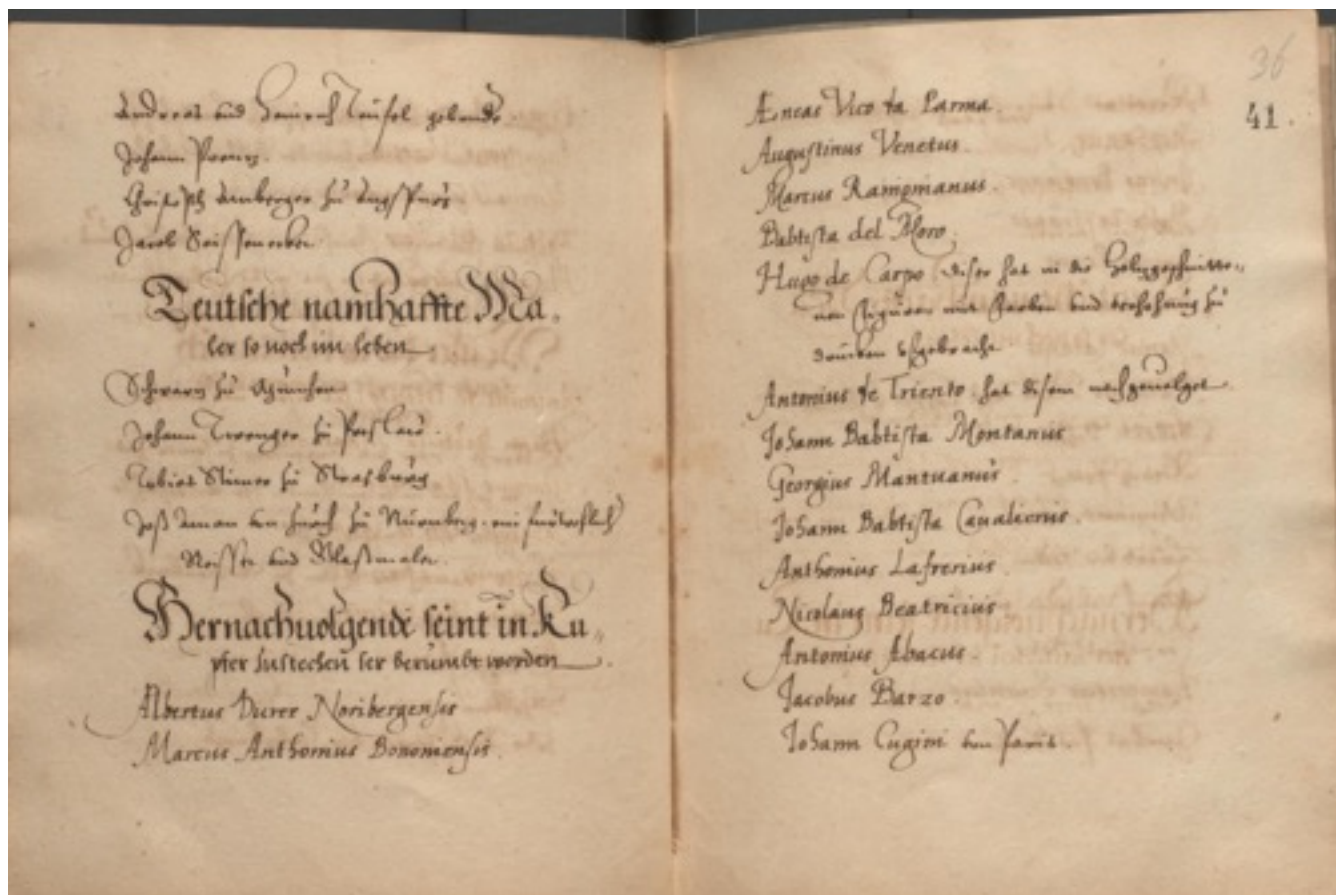 Andreas und Heinrich Teufel gebrüde
Johann
Christoff Amberger zu Augspurg
Jacob Seissenecker
Teutsche namhaffte Ma,
ler so noch im leben
Schwarz zu München
Johann Twenger zu Preslau.
Tobias Stimer zu Strasburg
Jost Aman von Zürch zu Nürnberg. ein fürtrefflich
Reisser und Glaßmaler.
Hernachuolgende seint in Ku,
pfer zustechen ser berümbt worden
Albertus Durer Noribergensis
Marcus Anthonius Bononiensis.
36
41.
Æneas Vico da Parma.
Augustinus Venetus.
Marcus Rauignianus.
Babtista del Moro.
Hugo de Carpo diser hat in die holzgeschnitte,,
nen figuren mit Farben und erhohung zu
drucken ufgebracht
Antonius de Triento. hat disem nachgeuolget.
Johann Babtista Montanus
Georgius Mantuanus.
Johann Babtista Caualierius.
Anthonius Lafrerius.
Nicolaus Beatricius
Antonius Abacus.
Jacobus Barzo.
Johann Cugini von Paris.